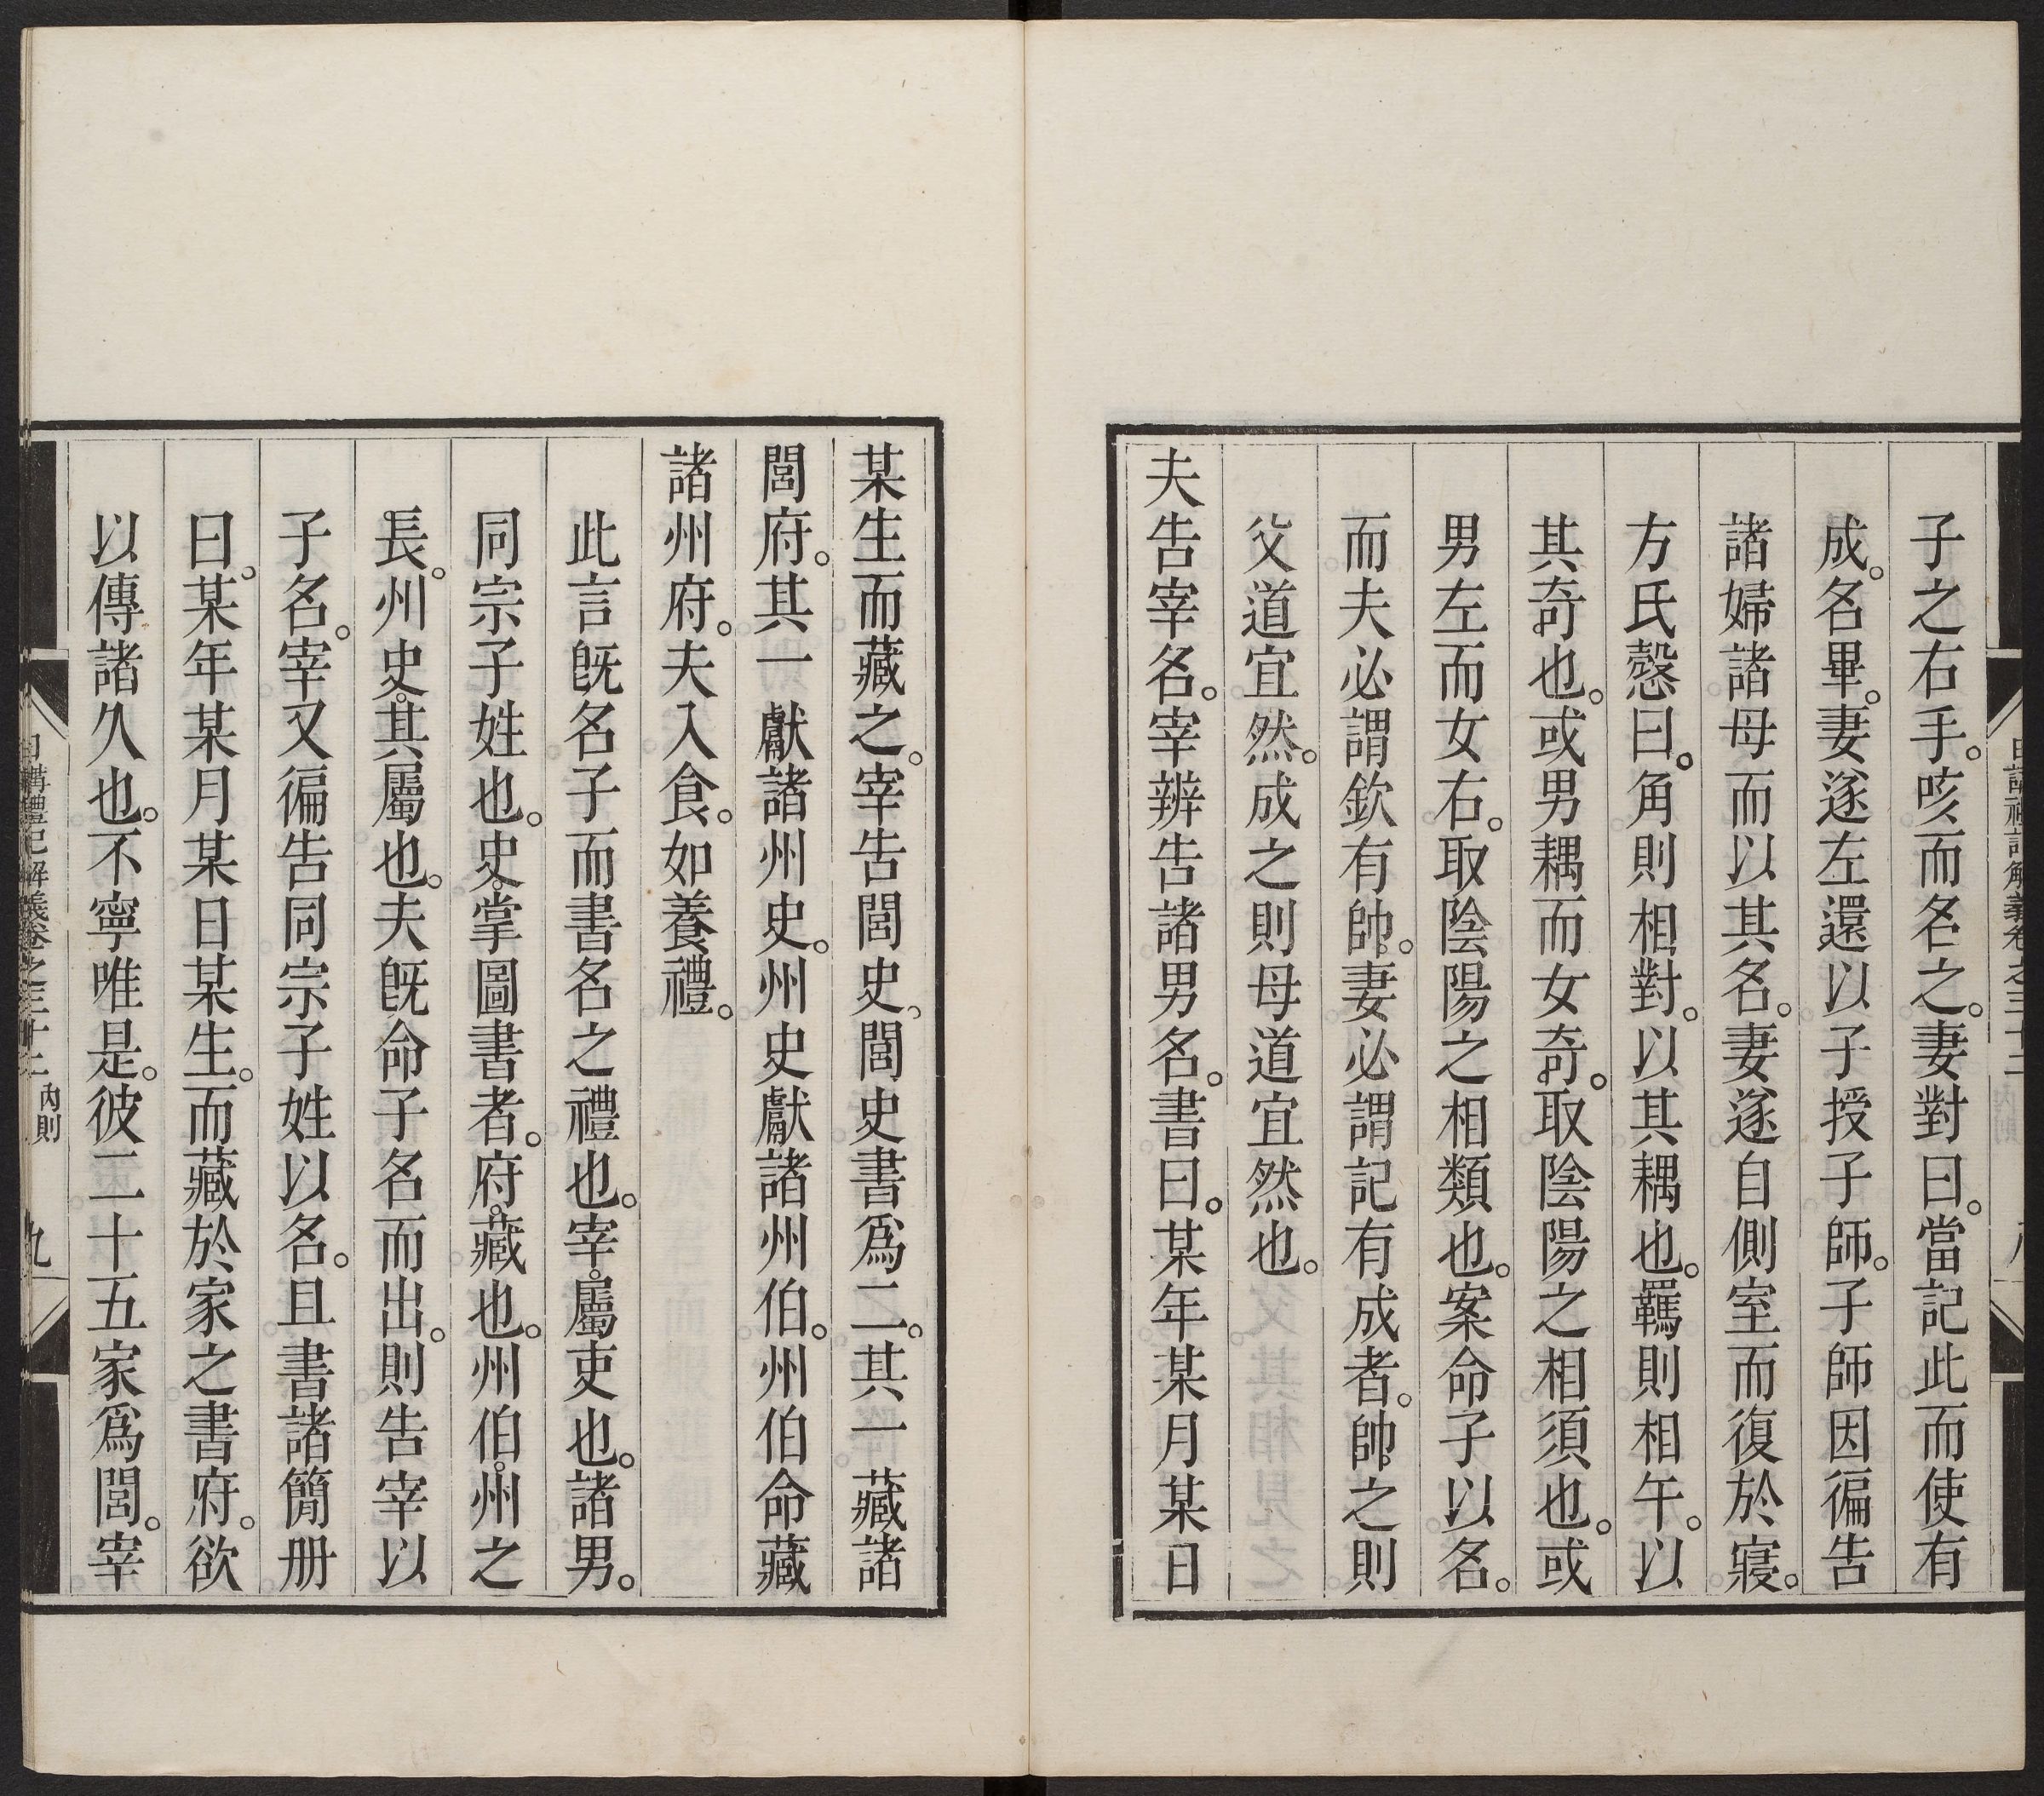 子之右手。咳而名之。妻對曰。當記此而使有
成。名畢。妻遂左還以子授子師。子師因徧告
諸婦諸母而以其名。妻遂自側室而復於寢。
方氏慤曰。角則相對。以其耦也。羈則相午。以
其奇也。或男耦而女奇。取陰陽之相須也。或
男左而女右。取陰陽之相類也。案命子以名。
而夫必謂欽有帥。妻必謂記有成者。帥之則
父道宜然。成之則母道宜然也。
夫告宰名。宰辨告諸男名。書曰。某年某月某日
某生而藏之。宰告閭史。閭史書爲二。其一藏諸
閭府。其一獻諸州史。州史獻諸州伯。州伯命藏
諸州府。夫入食。如養禮。
此言旣名子而書名之禮也。宰。屬吏也。諸男。
同宗子姓也。史。掌圖書者。府。藏也。州伯。州之
長。州史。其屬也。夫旣命子名而出。則告宰以
子名。宰又徧告同宗子姓以名。且書諸簡册
曰。某年某月某日某生。而藏於家之書府。欲
以傳諸久也。不寧唯是。彼二十五家爲閭。宰
日講禮記解義卷之三十二 內則 九